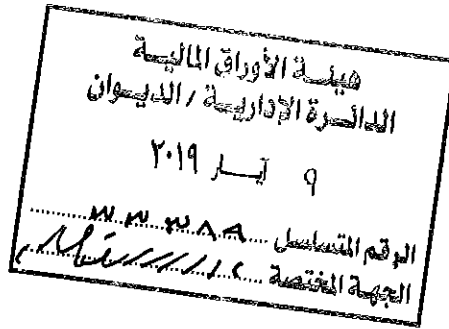 هيئـة الأوراق الماليـة
الدائـرة الإداريـة / الديـوان
٩ آيــار ٢٠١٩
الرقم المتسلسل
الجهة المختصة